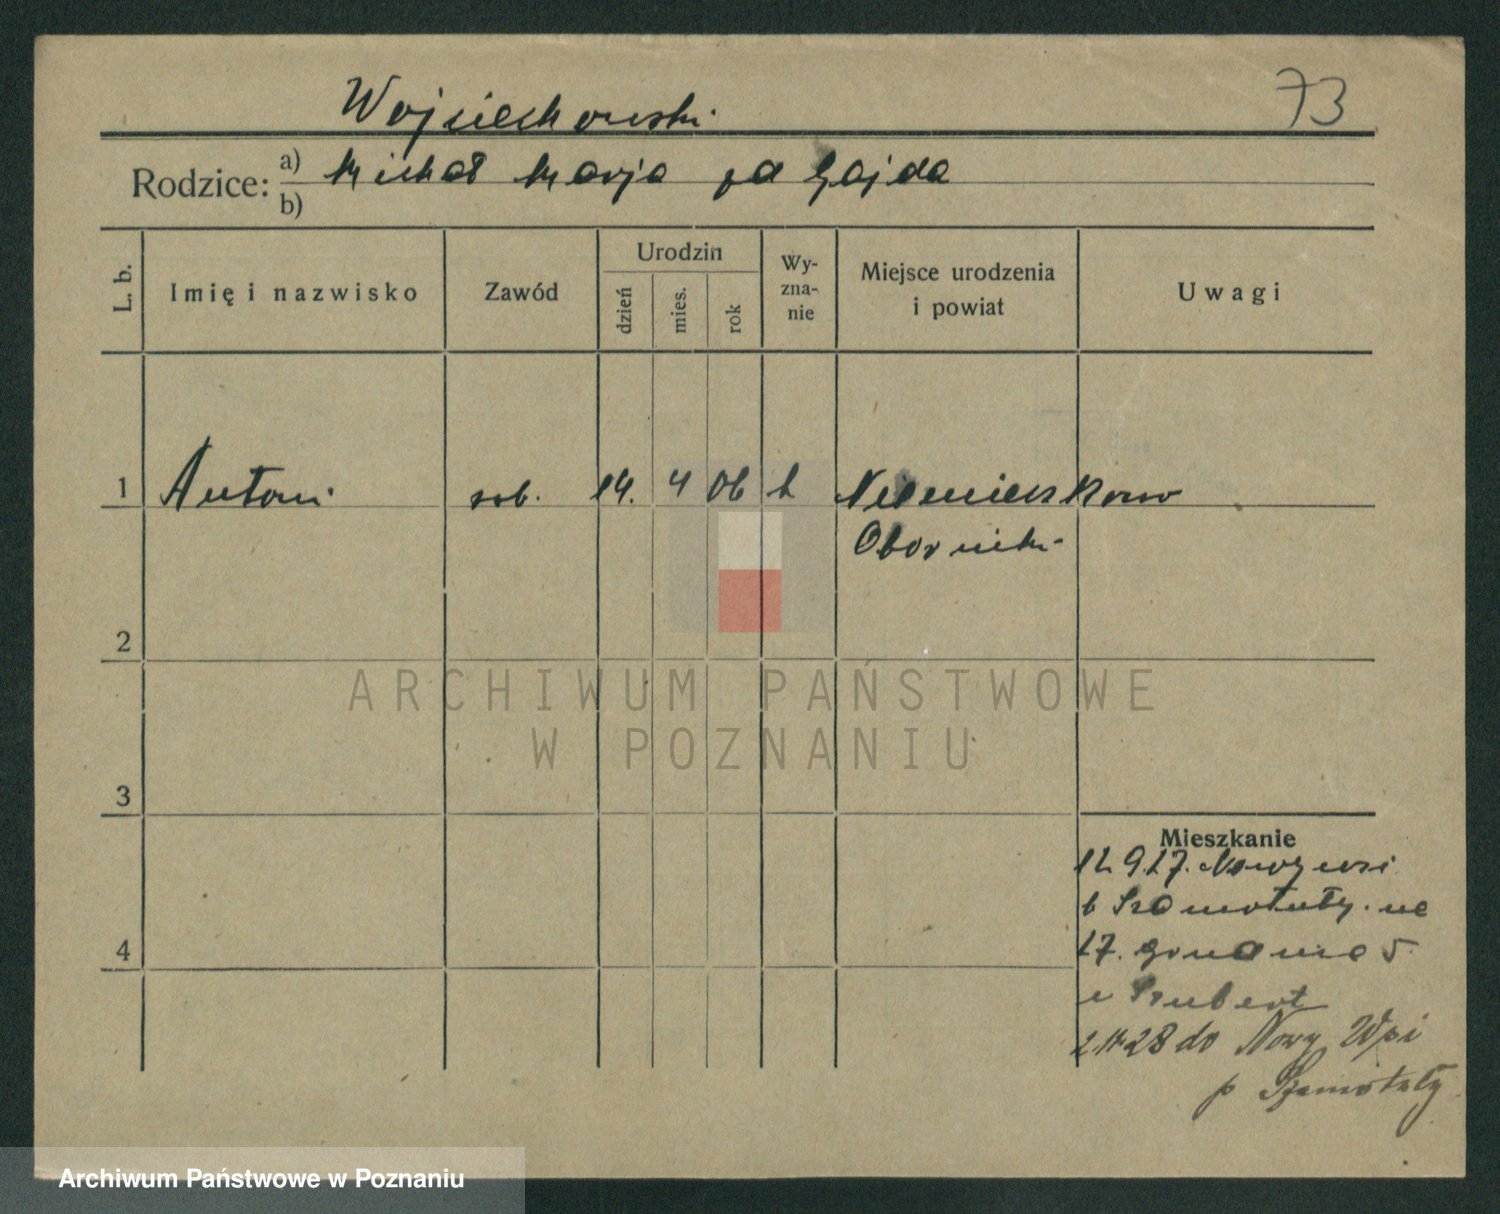 Wojciechowski
73
Rodzice: a) Michał Marja zd Gajda
b)
L. b.
Imię i nazwisko
Zawód
Urodzin
dzień
mies.
rok
Wy-
zna-
nie
Miejsce urodzenia
i powiat
Uwagi
1 Antoni rob. 14. 4 06 k Niemieczkowo
Oborniki
2
3
4
Mieszkanie
12 9 27. Nowy wsi
p Szamotuły. na
17. grudnia 5
u Szubert
28 do Nowy Wsi
p Szamotuły
ARCHIWUM PAŃSTWOWE
W POZNANIU
Archiwum Państwowe w Poznaniu